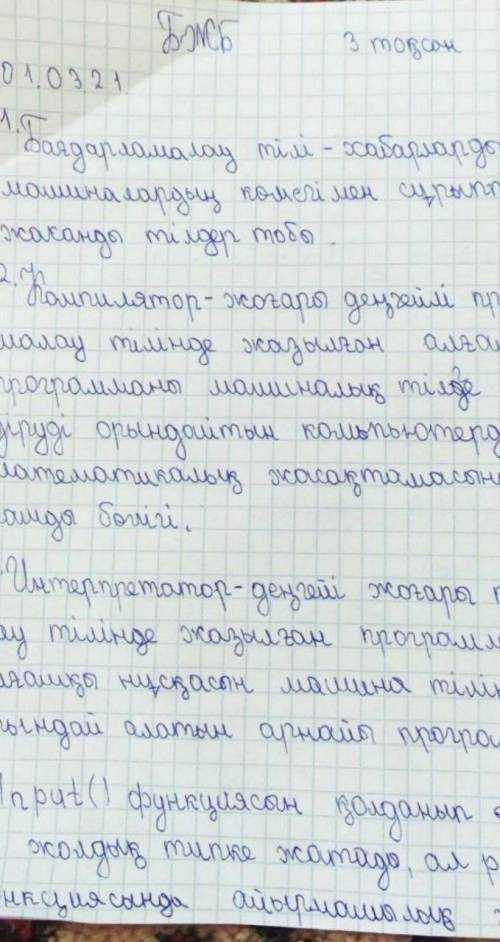 БЖБ 3 тоқсан
01.03.21.
1. Бағдарламалау тілі - хабарларды
машиналардың көмегімен сұрып
жасанды тілдер тобы.
2. Компилятор - жоғары деңгейлі пр
малау тілінде жазылған алға
программаны машиналық тілде
діруді орындайтын компьютерд
математикалық жасақтамасын
бөлігі.
Интерпретатор - деңгейі жоғары
ау тілінде жазылған програмл
ғашқы нұсқасын машина тілін
ындай алатын арнайы програ
Input() функциясын қолданып
жолдық типке жатады, ал р
нкциясында айырмашылық